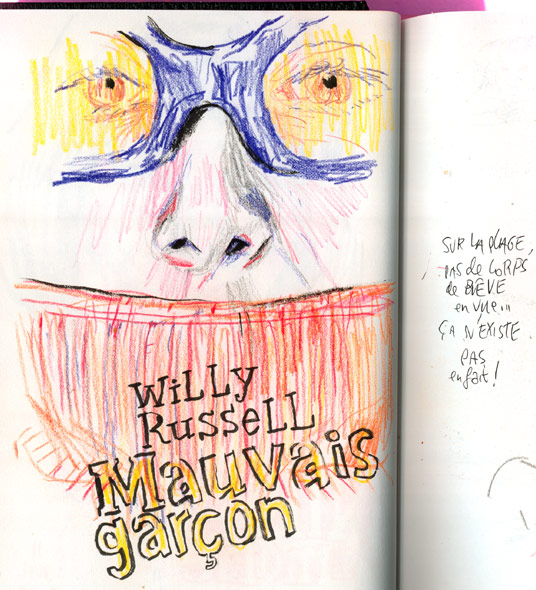 WiLLY
RusseLL
Mauvais
garçon
SUR LA PLAGE,
PAS de CORPS
de RÊVE
en vue...
ÇA N'EXISTE
PAS
en fait !